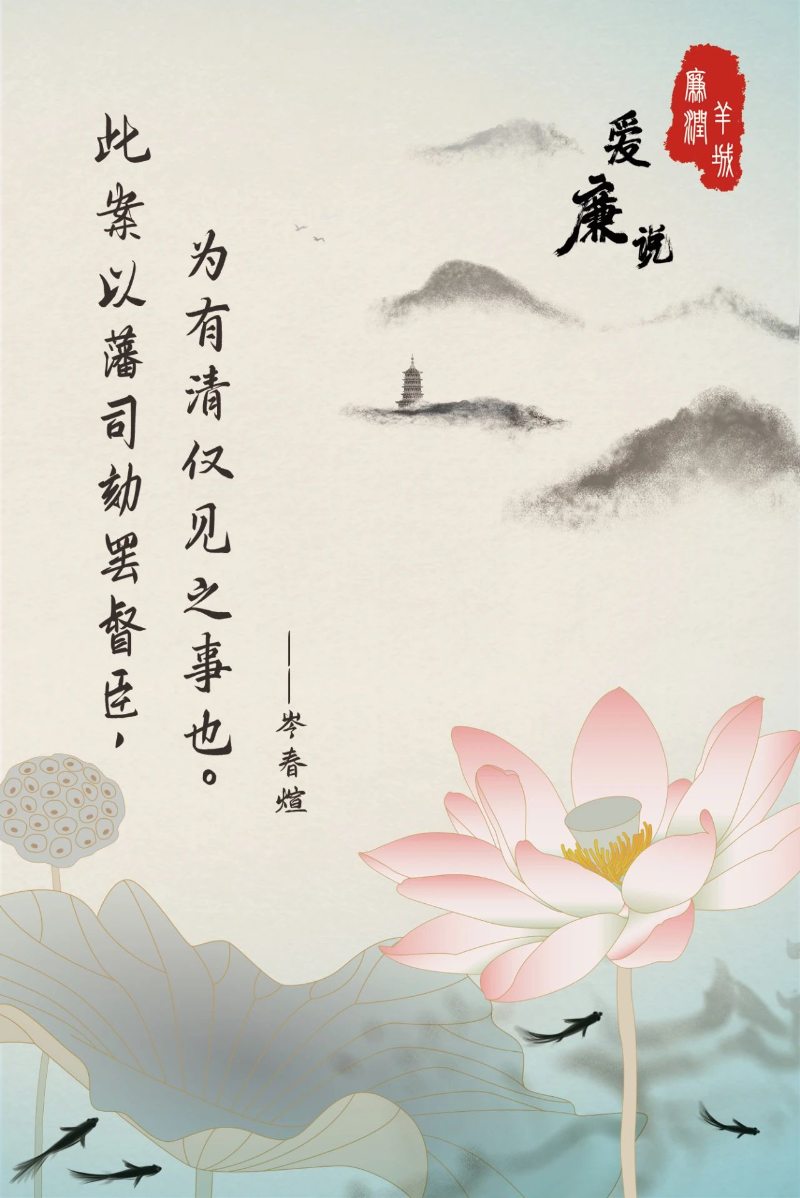 廉润
羊城
爱廉说
此案以藩司劾罢督臣，
为有清仅见之事也。
——岑春煊